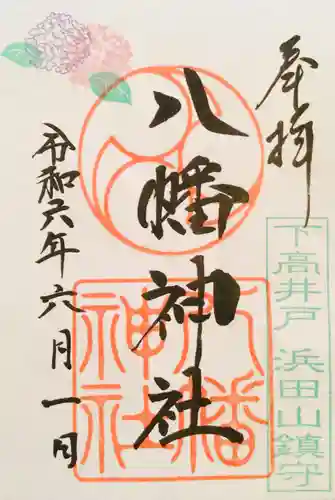 奉拝
下高井戸 浜田山鎮守
八幡神社
八幡神社
令和六年 六月 一日